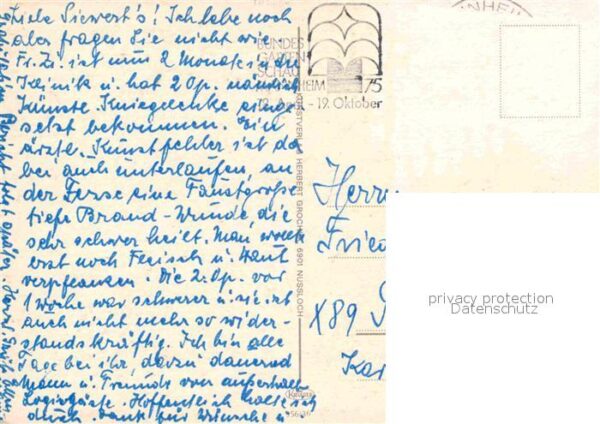 Liebe Siewert's! Ich lebe noch
aber fragen Sie nicht wie.
Fr. Zi. ist nun 2 Monate in der
Klinik u. hat 2 Op. nämlich
Künstl. Kniegelenke einge-
setzt bekommen. Ein
ärztl. Kunstfehler ist da
bei auch unterlaufen, an
der Ferse eine Faustgroße
tiefe Brand-Wunde, die
sehr schwer heilt. Man wollte
erst noch Fleisch u. Haut
verpflanzen. Die 2. Op. vor
1 Woche war schwerer u. sie ist
auch nicht mehr so wider-
standskräftig. Ich bin alle
Tage bei ihr, dazu dauernd
Mann u. Freunde von außerhalb
Logiergäste. Hoffentlich halte ich
durch. Dank für Wünsche u.
Bericht folgt später.
BUNDES
GARTEN
SCHAU
HEIM 75
- 19. Oktober
KUNSTVERLAG HERBERT GROCH 6901 NUSSLOCH
Krüger
Herrn
Fried
X89
Ka
privacy protection
Datenschutz